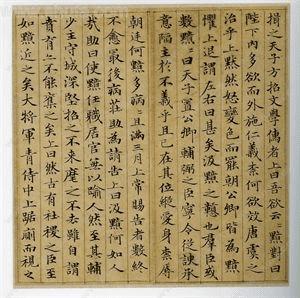 揖之天子方招文學儒者上曰吾欲云〻黯對曰
陛下內多欲而外施仁義柰何欲效唐虞之
治乎上默然怒變色而罷朝公卿皆為黯
懼上退謂左右曰甚矣汲黯之戇也羣臣或
數黯〻曰天子置公卿輔弼之臣寧令從諛承
意陷主於不義乎且已在其位縱愛身柰辱
朝廷何黯多病〻且滿三月上常賜告者數終
不愈最後病莊助為請告上曰汲黯何如人
哉助曰使黯任職居官無以踰人然至其輔
少主守城深堅招之不來麾之不去雖自謂
賁育亦不能奪之矣上曰然古有社稷之臣至
如黯近之矣大將軍青侍中上踞廁而視之